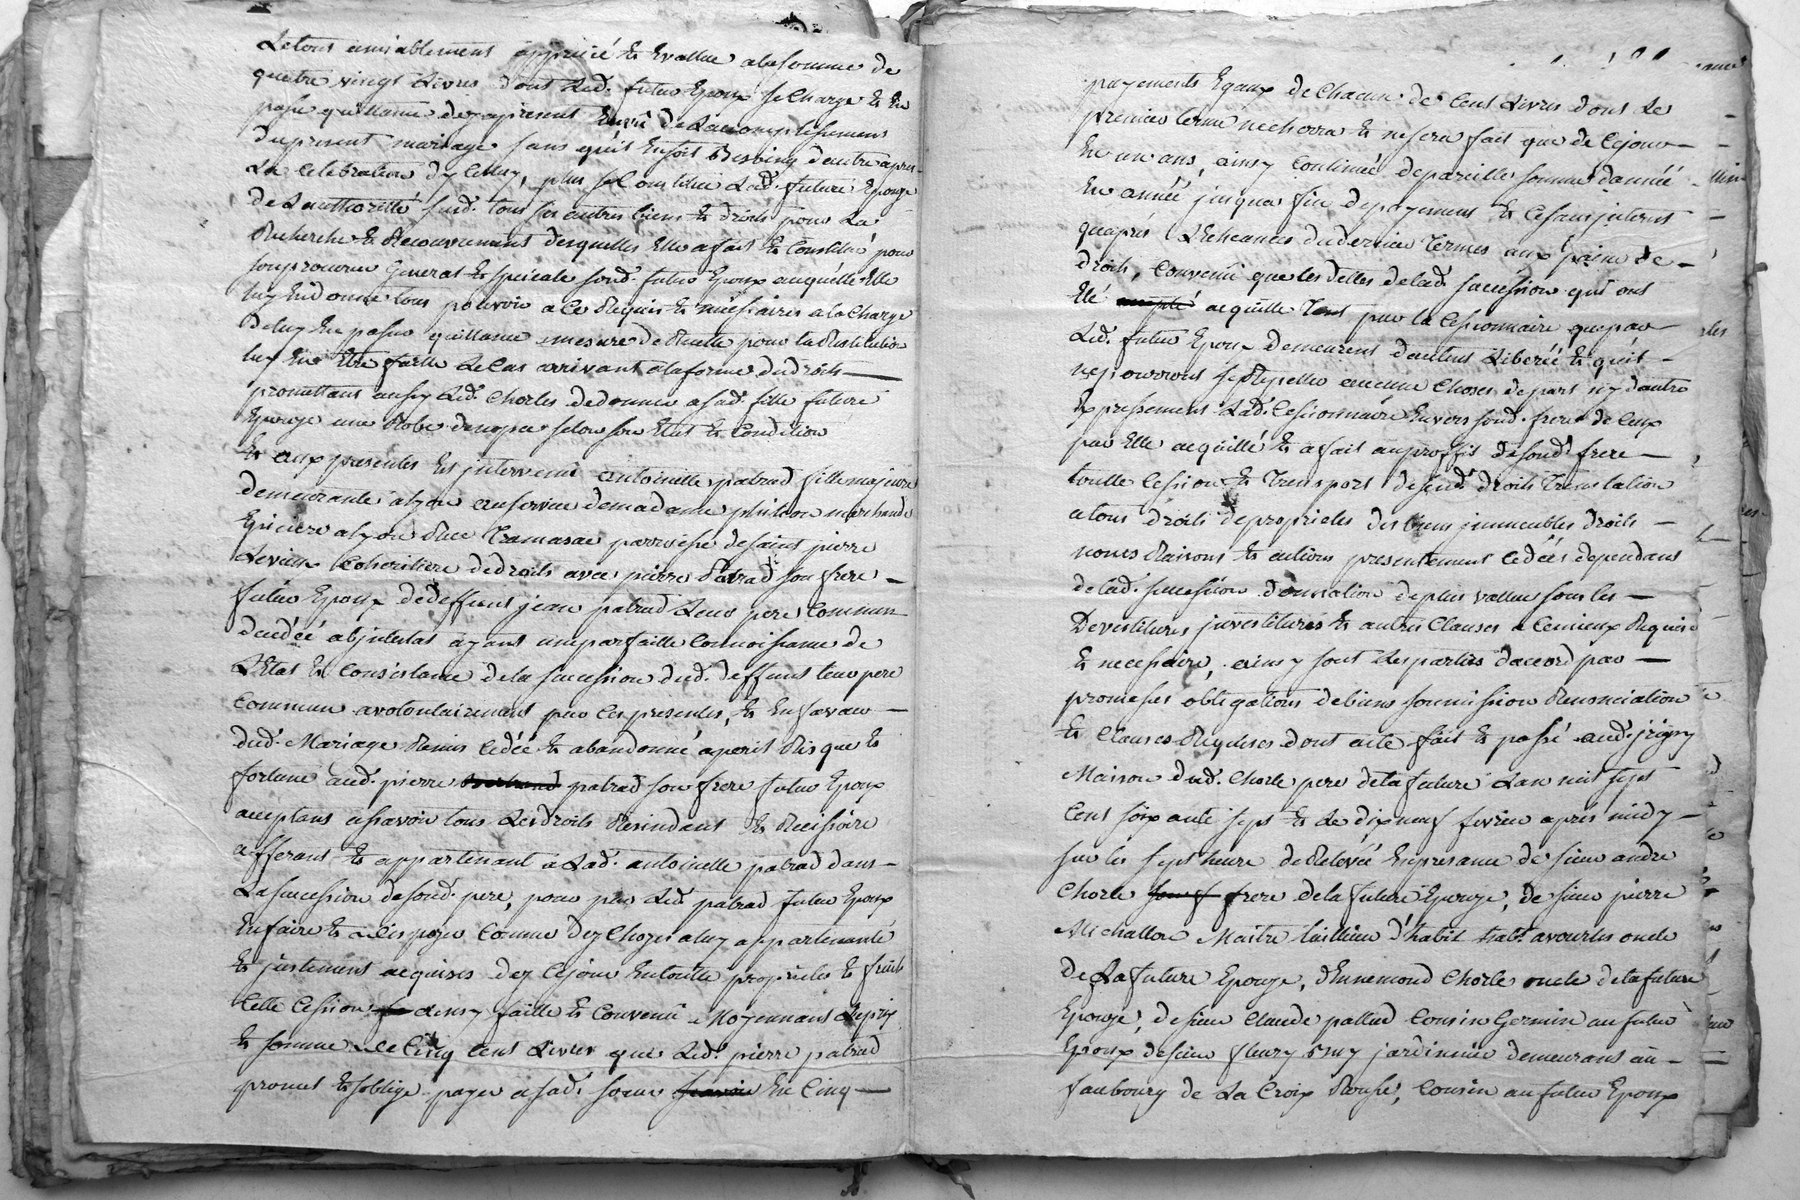 Le tout amiablement apprecié et Evallue a la somme de
quatre vingt Livres dont Led. futur Epoux se Charge Et En
passe quittance des apresent Envû de Laccomplissement
Du present mariage sans quil En soit Besoing dautre apres
La Celebration dy Celluy, plus se Constitüe Lad. future Epouze
De Lauthorité susd. tous ses autres biens Et droits pour La
Recherche Et Recouvrement desquelles Elle a fait Et Constitué pour
son procureur General Et speciale sond. futur Epoux auquelle Elle
luy En donne tous pouvoir a Ce Requis Et necessaires a la Charge
De luy En passer quittance a mesure de Recette pour la Restitution
luy En Etre faitte Le Cas arrivant a la forme du droit
promettant aussy Led. Chorles de donner a sad. fille future
Epouze une Robe de nopce selon son Etat Et Condition
Et aux presentes Est intervenue antoinette patrad fille majeure
demeurante a lyon au service de madame marchande
Epiciere a lyon Rue Tramasac parroisse de saint pierre
Le vieux Coheritiere de droits avec pierre Patrad son frere
futur Epoux de deffunt jean patrad Leur pere Commun
decédé abjntestat ayant une parfaitte Connoissance de
L'Etat Et Consistance de la succession dud. deffunt leur pere
Commun a volontairement par Ces presentes, Et En faveur
dud. Mariage Remis Cedée Et abandonné a peril Risque Et
fortune aud. pierre patrad son frere futur Epoux
acceptant assavoir tous Les droits Resindant Et Recissoire
afferant Et appartenant a Lad. antoinette patrad dans
La succession de sond. pere, pour par Led. patrad futur Epoux
En faire Et disposer Comme dez Chozes a luy appartenante
Et justement acquises dez Cejour En toutte proprietes Et fruits
Cette Cession ainsy faitte Et Convenû Moyennant Le prix
Et somme de Cinq Cent Livres que Led. pierre patrad
promet Et soblige payer a sad. soeur En Cinq
payements Egaux de Chacun de Cent Livres dont Le
premier terme n'echerra Et ne sera fait que de Cejour
En un ans, ainsy Continué de pareille somme dannée
En année jusques fin de payement Et Ce sans jnterest
qu'aprés L'Echeances du dernier Termes aux peine de
droit, Convenû que les dettes de lad. succession qui ont
Eté acquitté Tant par la Cessionnaire que par
Led. futur Epoux demeurent dautant Liberéé Et quil
ne pourront se Repetter aucune Choses de part n'y dautre
Expressement Lad. Cessionnaire Envers sond. frere de Ceux
par Elle acquitté Et a fait au proffit de sond. frere
toutte Cession Et Transport de sesd. droits Translation
a tous droits de proprietes des biens jmmeubles droits
noms Raisons Et actions presentement Cedées dependant
de lad. succession donnation de plus vallue sous les
Devestitures jnvestitures Et autres Clauses a Ce mieux Requise
Et necessaire, ainsy sont Les parties daccord par
promesses obligations de biens soumission Renonciation
Et Clauses Requises dont acte fait Et passé aud. jrigny
Maison dud. Chorle pere de la future L'an mil sept
Cent soixante sept Et Le dix neuf fevrier apres midy
sur les sept heure de Relevée En presance de sieur andre
Chorle frere de la future Epouze, de sieur pierre
Michallon Maitre tailleur d'habit habt. a vourles oncle
De La future Epouze, d'Ennemond Chorle oncle de la future
Epouze, de sieur Claude pallud Cousin Germin au futur
Epoux de sieur fleury jardinnier demeurant au
faubourg de La Croix Rousse, Cousin au futur Epoux